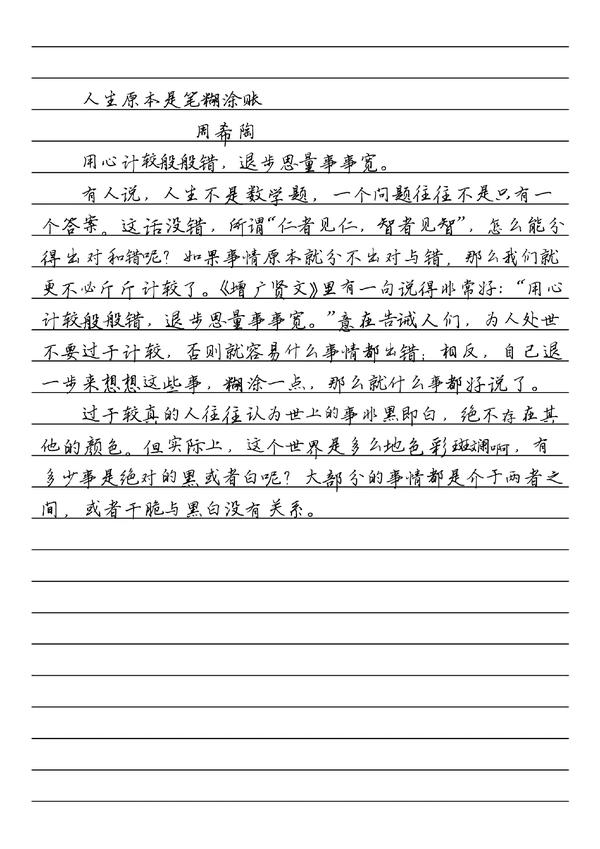 人生原本是笔糊涂账
周希陶
用心计较般般错，退步思量事事宽。
有人说，人生不是数学题，一个问题往往不是只有一
个答案。这话没错，所谓“仁者见仁，智者见智”，怎么能分
得出对和错呢？如果事情原本就分不出对与错，那么我们就
更不必斤斤计较了。《增广贤文》里有一句说得非常好：“用心
计较般般错，退步思量事事宽。”意在告诫人们，为人处世
不要过于计较，否则就容易什么事情都出错；相反，自己退
一步来想想这些事，糊涂一点，那么就什么事都好说了。
过于较真的人往往认为世上的事非黑即白，绝不存在其
他的颜色。但实际上，这个世界是多么地色彩斑斓啊，有
多少事是绝对的黑或者白呢？大部分的事情都是介于两者之
间，或者干脆与黑白没有关系。